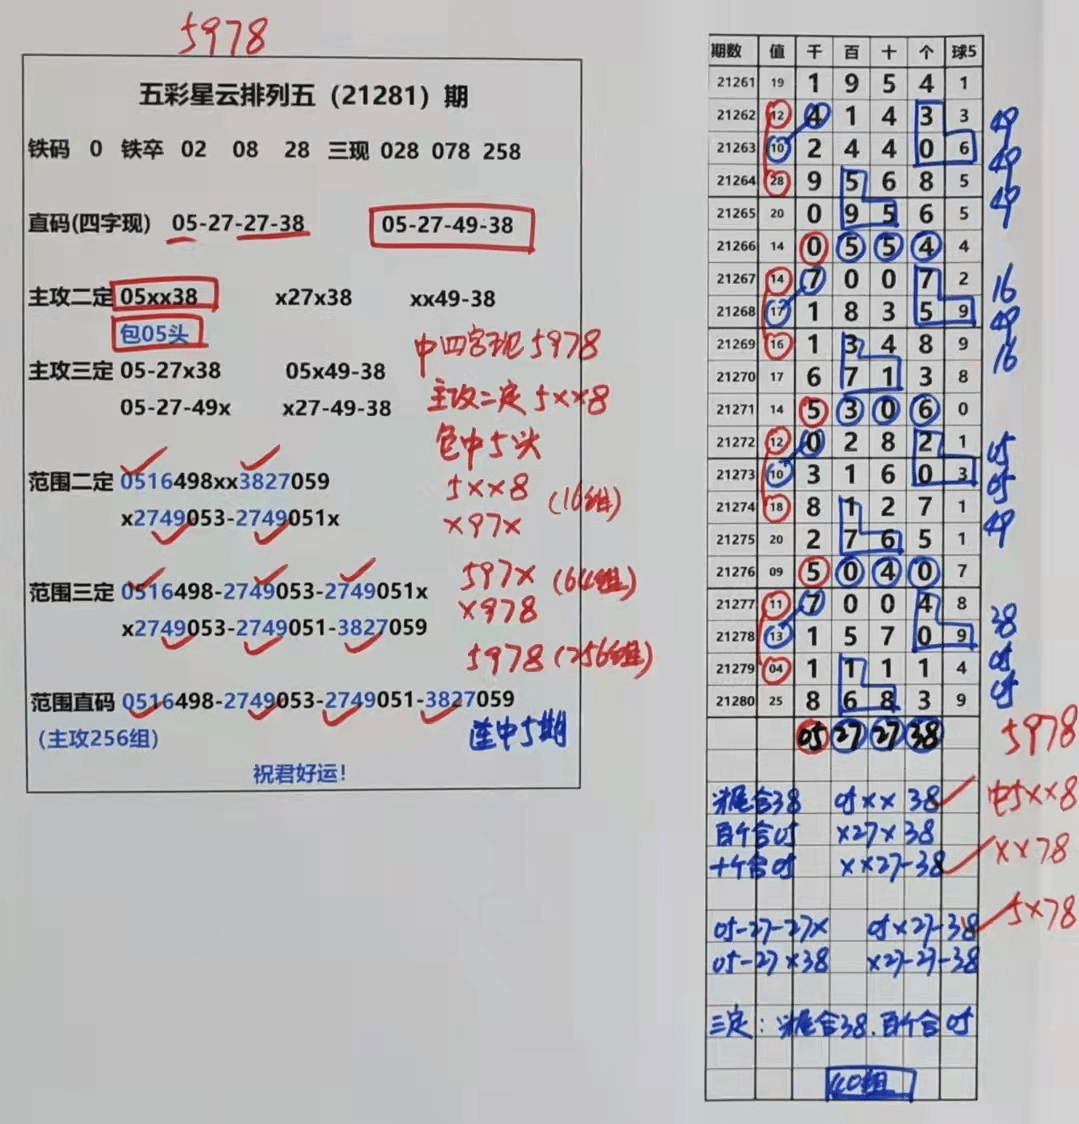 5978
五彩星云排列五（21281）期
铁码 0 铁卒 02 08 28 三现 028 078 258
直码(四字现) 05-27-27-38 05-27-49-38
主攻二定 05xx38 x27x38 xx49-38
包05头
中四字现5978
主攻三定 05-27x38 05x49-38
主攻二定5xx8
05-27-49x x27-49-38
包中5头
范围二定 0516498xx3827059
5xx8 (16组)
x2749053-2749051x
x97x
范围三定 0516498-2749053-2749051x
597x (64组)
x2749053-2749051-3827059
x978
5978 (256组)
范围直码 0516498-2749053-2749051-3827059
(主攻256组)
连中5期
祝君好运!
期数 值 千 百 十 个 球5
21261 19 1 9 5 4 1
21262 12 4 1 4 3 3 49
21263 10 2 4 4 0 6 49
21264 28 9 5 6 8 5 49
21265 20 0 9 5 6 5
21266 14 0 5 5 4 4
21267 14 7 0 0 7 2 16
21268 17 1 8 3 5 9 49
21269 16 1 3 4 8 9 16
21270 17 6 7 1 3 8
21271 14 5 3 0 6 0
21272 12 0 2 8 2 1 05
21273 10 3 1 6 0 3 05
21274 18 8 1 2 7 1 49
21275 20 2 7 6 5 1
21276 09 5 0 4 0 7
21277 11 7 0 0 4 8 38
21278 13 1 5 7 0 9
21279 04 1 1 1 1 4 05
21280 25 8 6 8 3 9 05
05 27 27 38 5978
头尾合38 05xx 38 中5xx8
百个合05 x27x 38
十个合05 xx27-38 xx78
05-27-27x 05x27-38 5x78
05-27x38 x27-27-38
三定:头尾合38.百个合05
40组